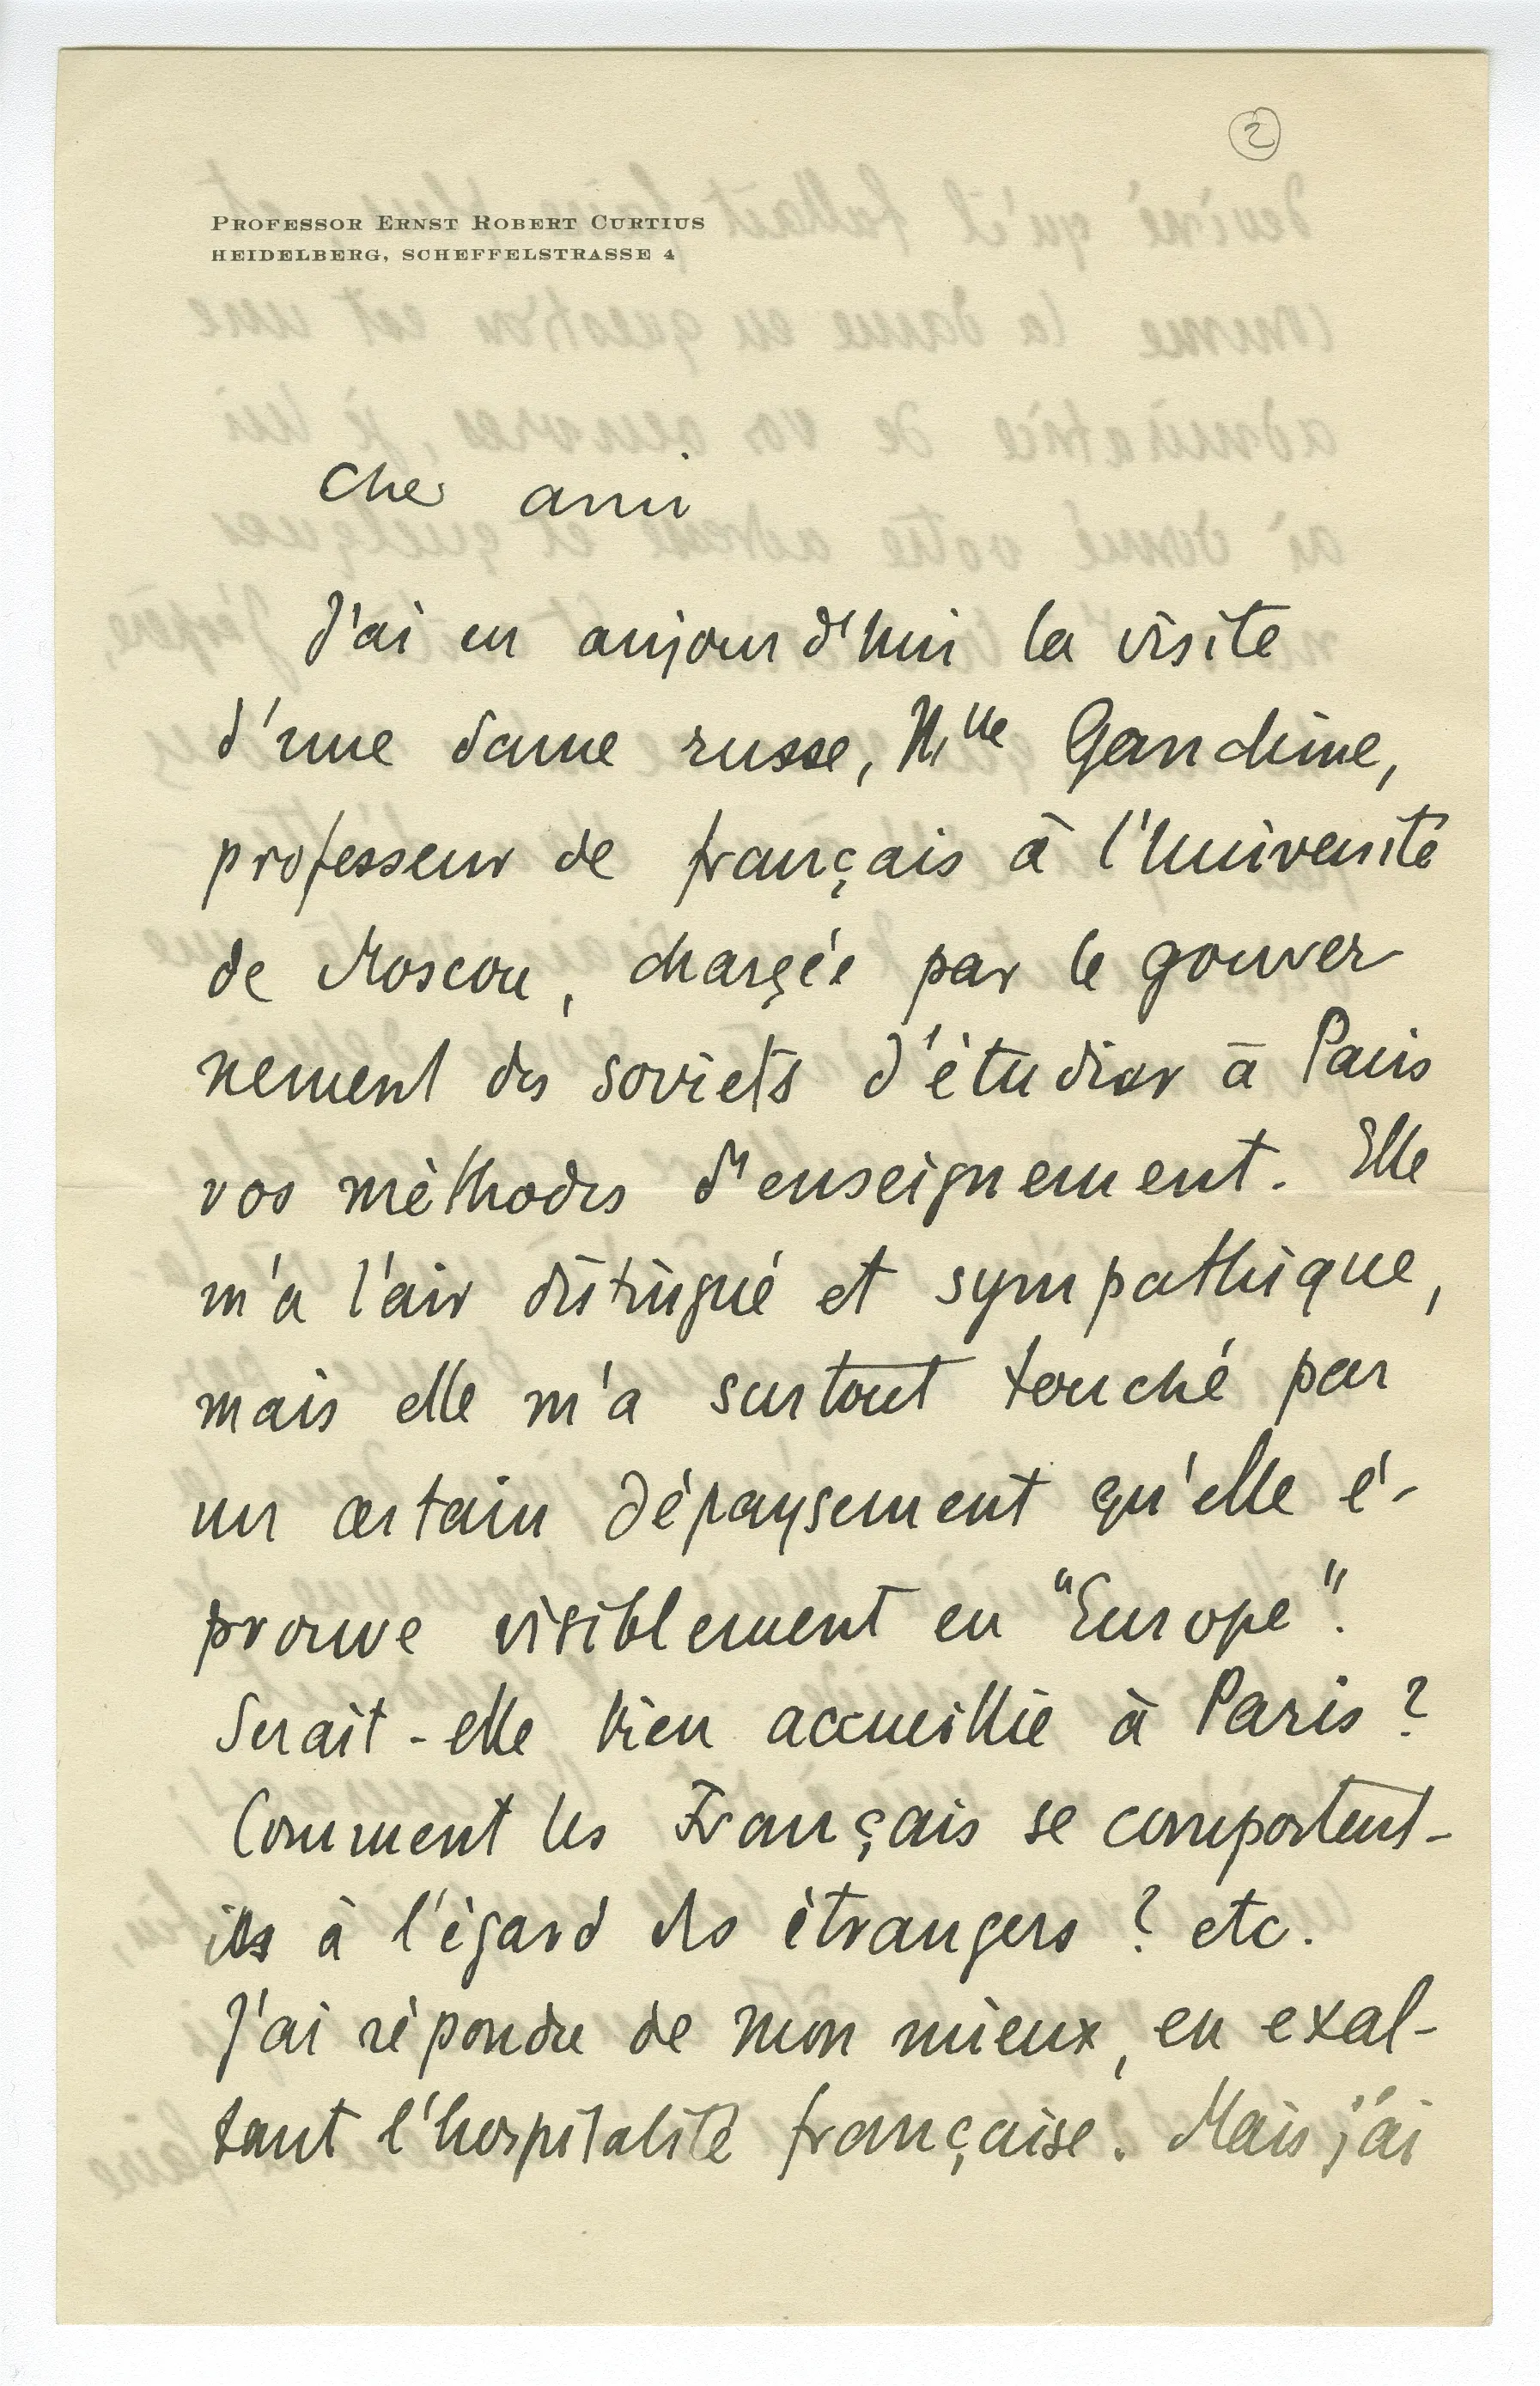 2
PROFESSOR ERNST ROBERT CURTIUS
HEIDELBERG, SCHEFFELSTRASSE 4
Cher ami
J'ai eu aujourd'hui la visite
d'une dame russe, Mlle Gandchine,
professeur de français à l'Université
de Moscou, chargée par le gouver
nement des soviets d'étudier à Paris
vos méthodes d'enseignement. Elle
m'a l'air distingué et sympathique,
mais elle m'a surtout touché par
un certain dépaysement qu'elle é-
prouve visiblement en "Europe".
Serait-elle bien accueillie à Paris ?
Comment les Français se comportent-
ils à l'égard des étrangers ? etc.
J'ai répondu de mon mieux, en exal-
tant l'hospitalité française. Mais j'ai